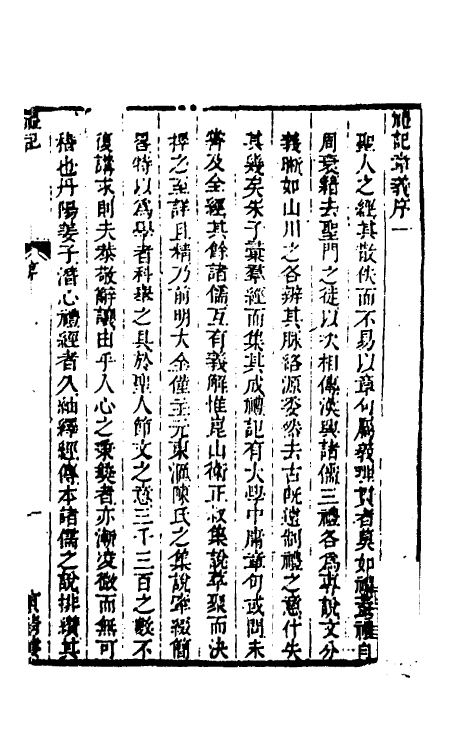 禮記章義序一
聖人之經其散佚而不易以章句屬義理貫者莫如禮葢禮自
周衰籍去聖門之徒以次相傳漢興諸儒三禮各為專說文分
義晰如山川之各辨其脉絡源委然去古旣遠制禮之意什失
其幾矣朱子彙羣經而集其成禮記有大學中庸章句或問未
嘗及全經其餘諸儒互有義解惟崑山衛正叔集說萃聚而決
擇之至詳且精乃前明大全僅主元東滙陳氏之集說率緩簡
畧特以為學者科舉之具於聖人節文之意三千三百之數不
復講求則夫恭敬辭讓由乎人心之秉彝者亦漸凌微而無可
稽也丹陽姜子潛心禮經者久紬繹經傳本諸儒之說排纘其
禮記
序
一